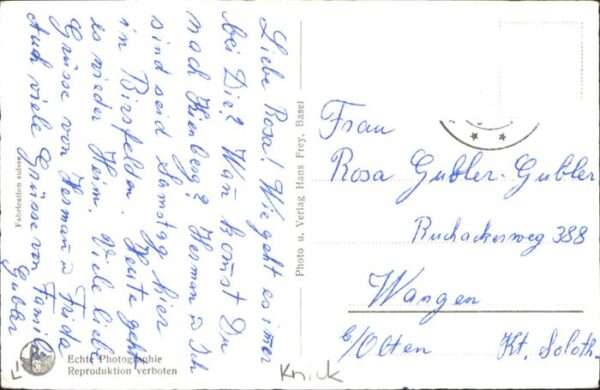 Liebe Rosa! Wie geht es immer
bei Dir? Wan komst Du
nach Kienberg? Herman u Ich
sind seid Samstag hier
in Birsfelden. Heute geht
es wieder Heim. Viele liebe
Grüsse von Herman u Frida
Auch viele Grüsse von Famil
Gubler
Fabrication suisse
Echte Photographie
Reproduktion verboten
Photo u. Verlag Hans Frey, Basel
Frau
Rosa Gubler-Gubler
Ruchackerweg 388
Wangen
b/Olten Kt. Soloth.
Knick